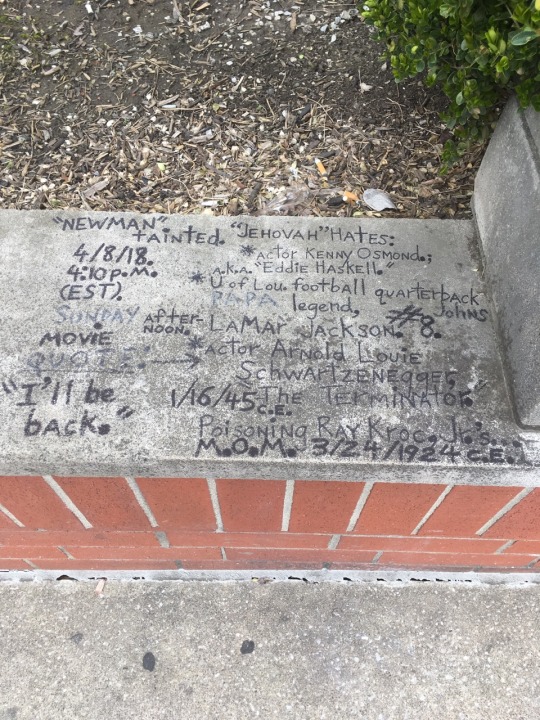 "NEWMAN"
tainted. "JEHOVAH" HATES:
4/8/18. *actor KENNY OSMOND.;
4:10 p.M. a.k.a. "Eddie Haskell."
(EST). *U of Lou. football quarterback
PAPA legend, JOHNS
SUNDAY after-NOON. LaMar Jackson. #8.
MOVIE *actor Arnold Louie
QUOTE: Schwartzenegger,
"I'll be 1/16/45 c.E. "The TERMINATOR."
back." Poisoning RAY Kroc. Jr.'s...
M.O.M. 3/24/1924 c.E.